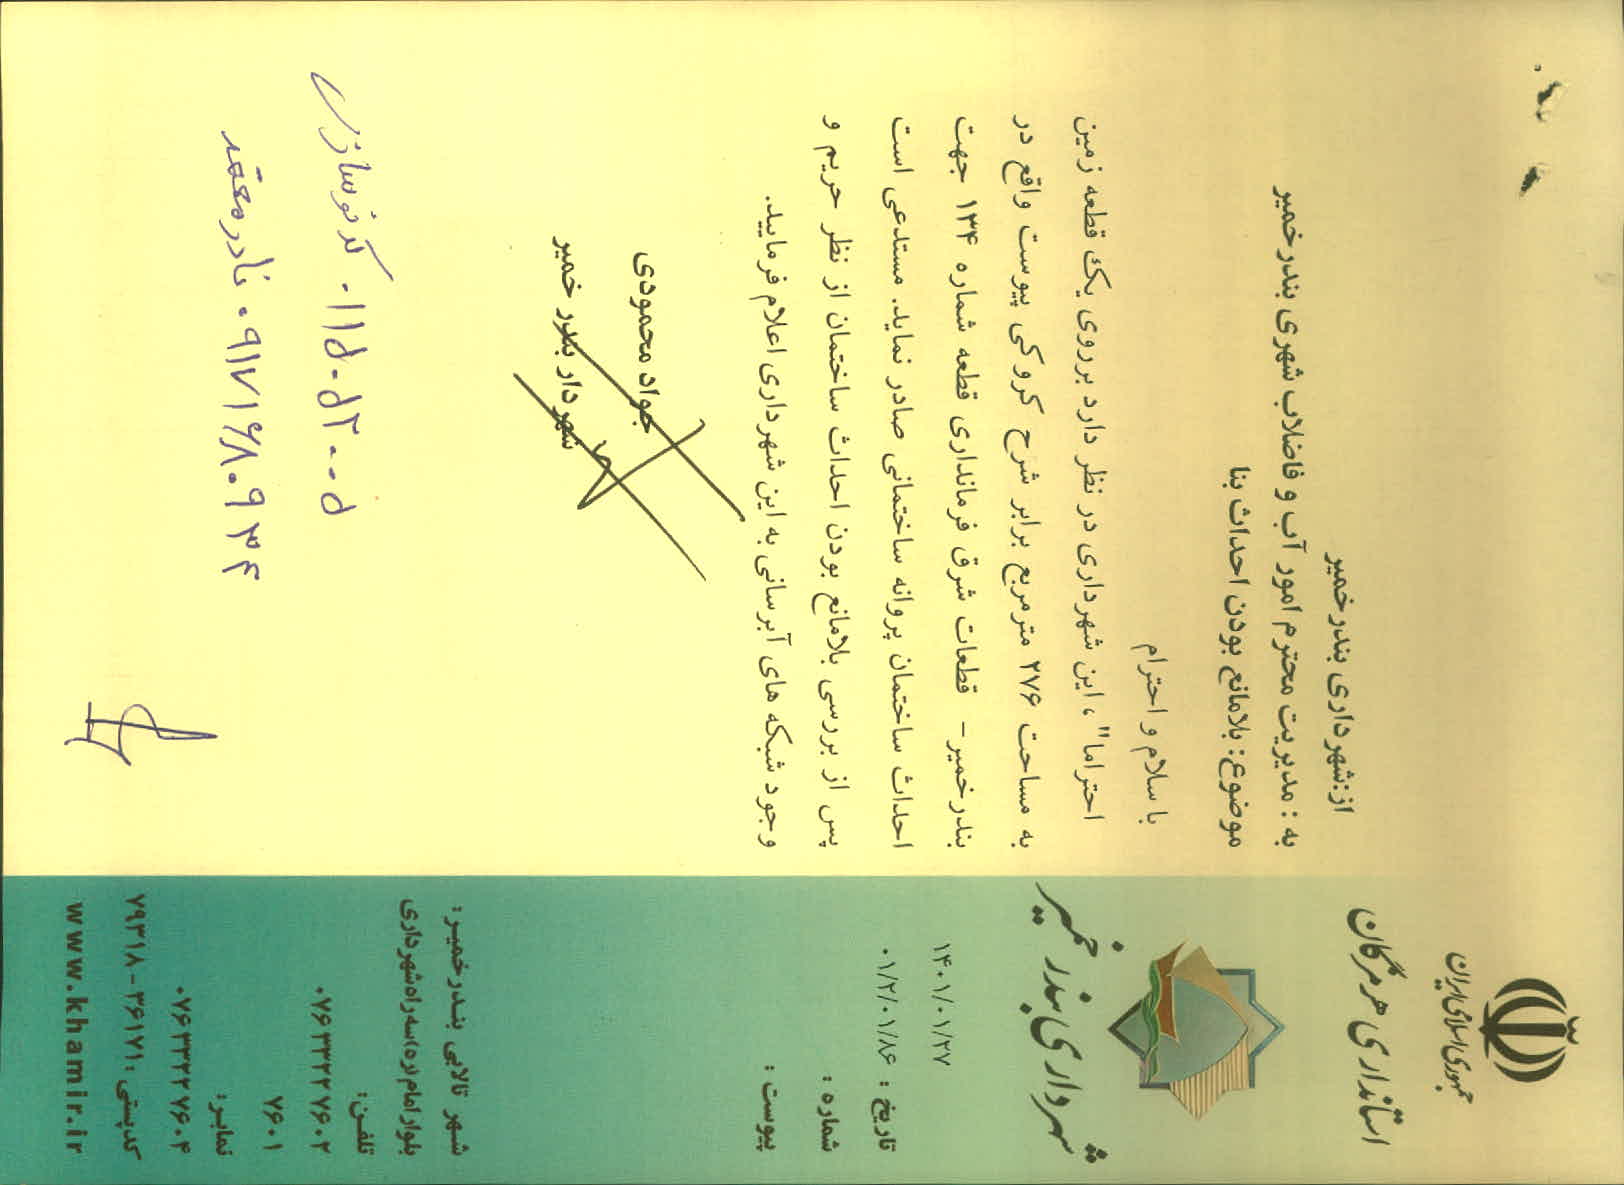 جمهوری اسلامی ایران
استانداری هرمزگان
شهرداری بندر خمیر
۱۴۰۱/۰۱/۲۷
تاریخ : ۰۱/۲/۰۱/۸۶
شماره :
پیوست :
از:شهرداری بندرخمیر
به : مدیریت محترم امور آب و فاضلاب شهری بندرخمیر
موضوع: بلامانع بودن احداث بنا
با سلام و احترام
احتراما" ، این شهرداری در نظر دارد برروی یک قطعه زمین
به مساحت ۲۷۶ مترمربع برابر شرح کروکی پیوست واقع در
بندرخمیر- قطعات شرق فرمانداری قطعه شماره ۱۳۴ جهت
احداث ساختمان پروانه ساختمانی صادر نماید. مستدعی است
پس از بررسی بلامانع بودن احداث ساختمان از نظر حریم و
وجود شبکه های آبرسانی به این شهرداری اعلام فرمایید.
جواد محمودی
شهردار بندر خمیر
کد نوسازی
نادر معتمد ۰۹۱۷۱۶۸۰۹۳۴
شهر تالابی بندرخمیر:
بلوار امام (ره) سه راه شهرداری
تلفن:
۰۷۶۳۳۲۲۷۶۰۲
۷۶۰۱
نمابر:
۰۷۶۳۳۲۲۷۶۰۴
کدپستی: ۳۶۱۷۱-۷۹۳۱۸
www.khamir.ir